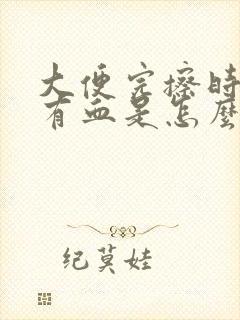 大便完擦时
有血是怎麼
纪莫娃